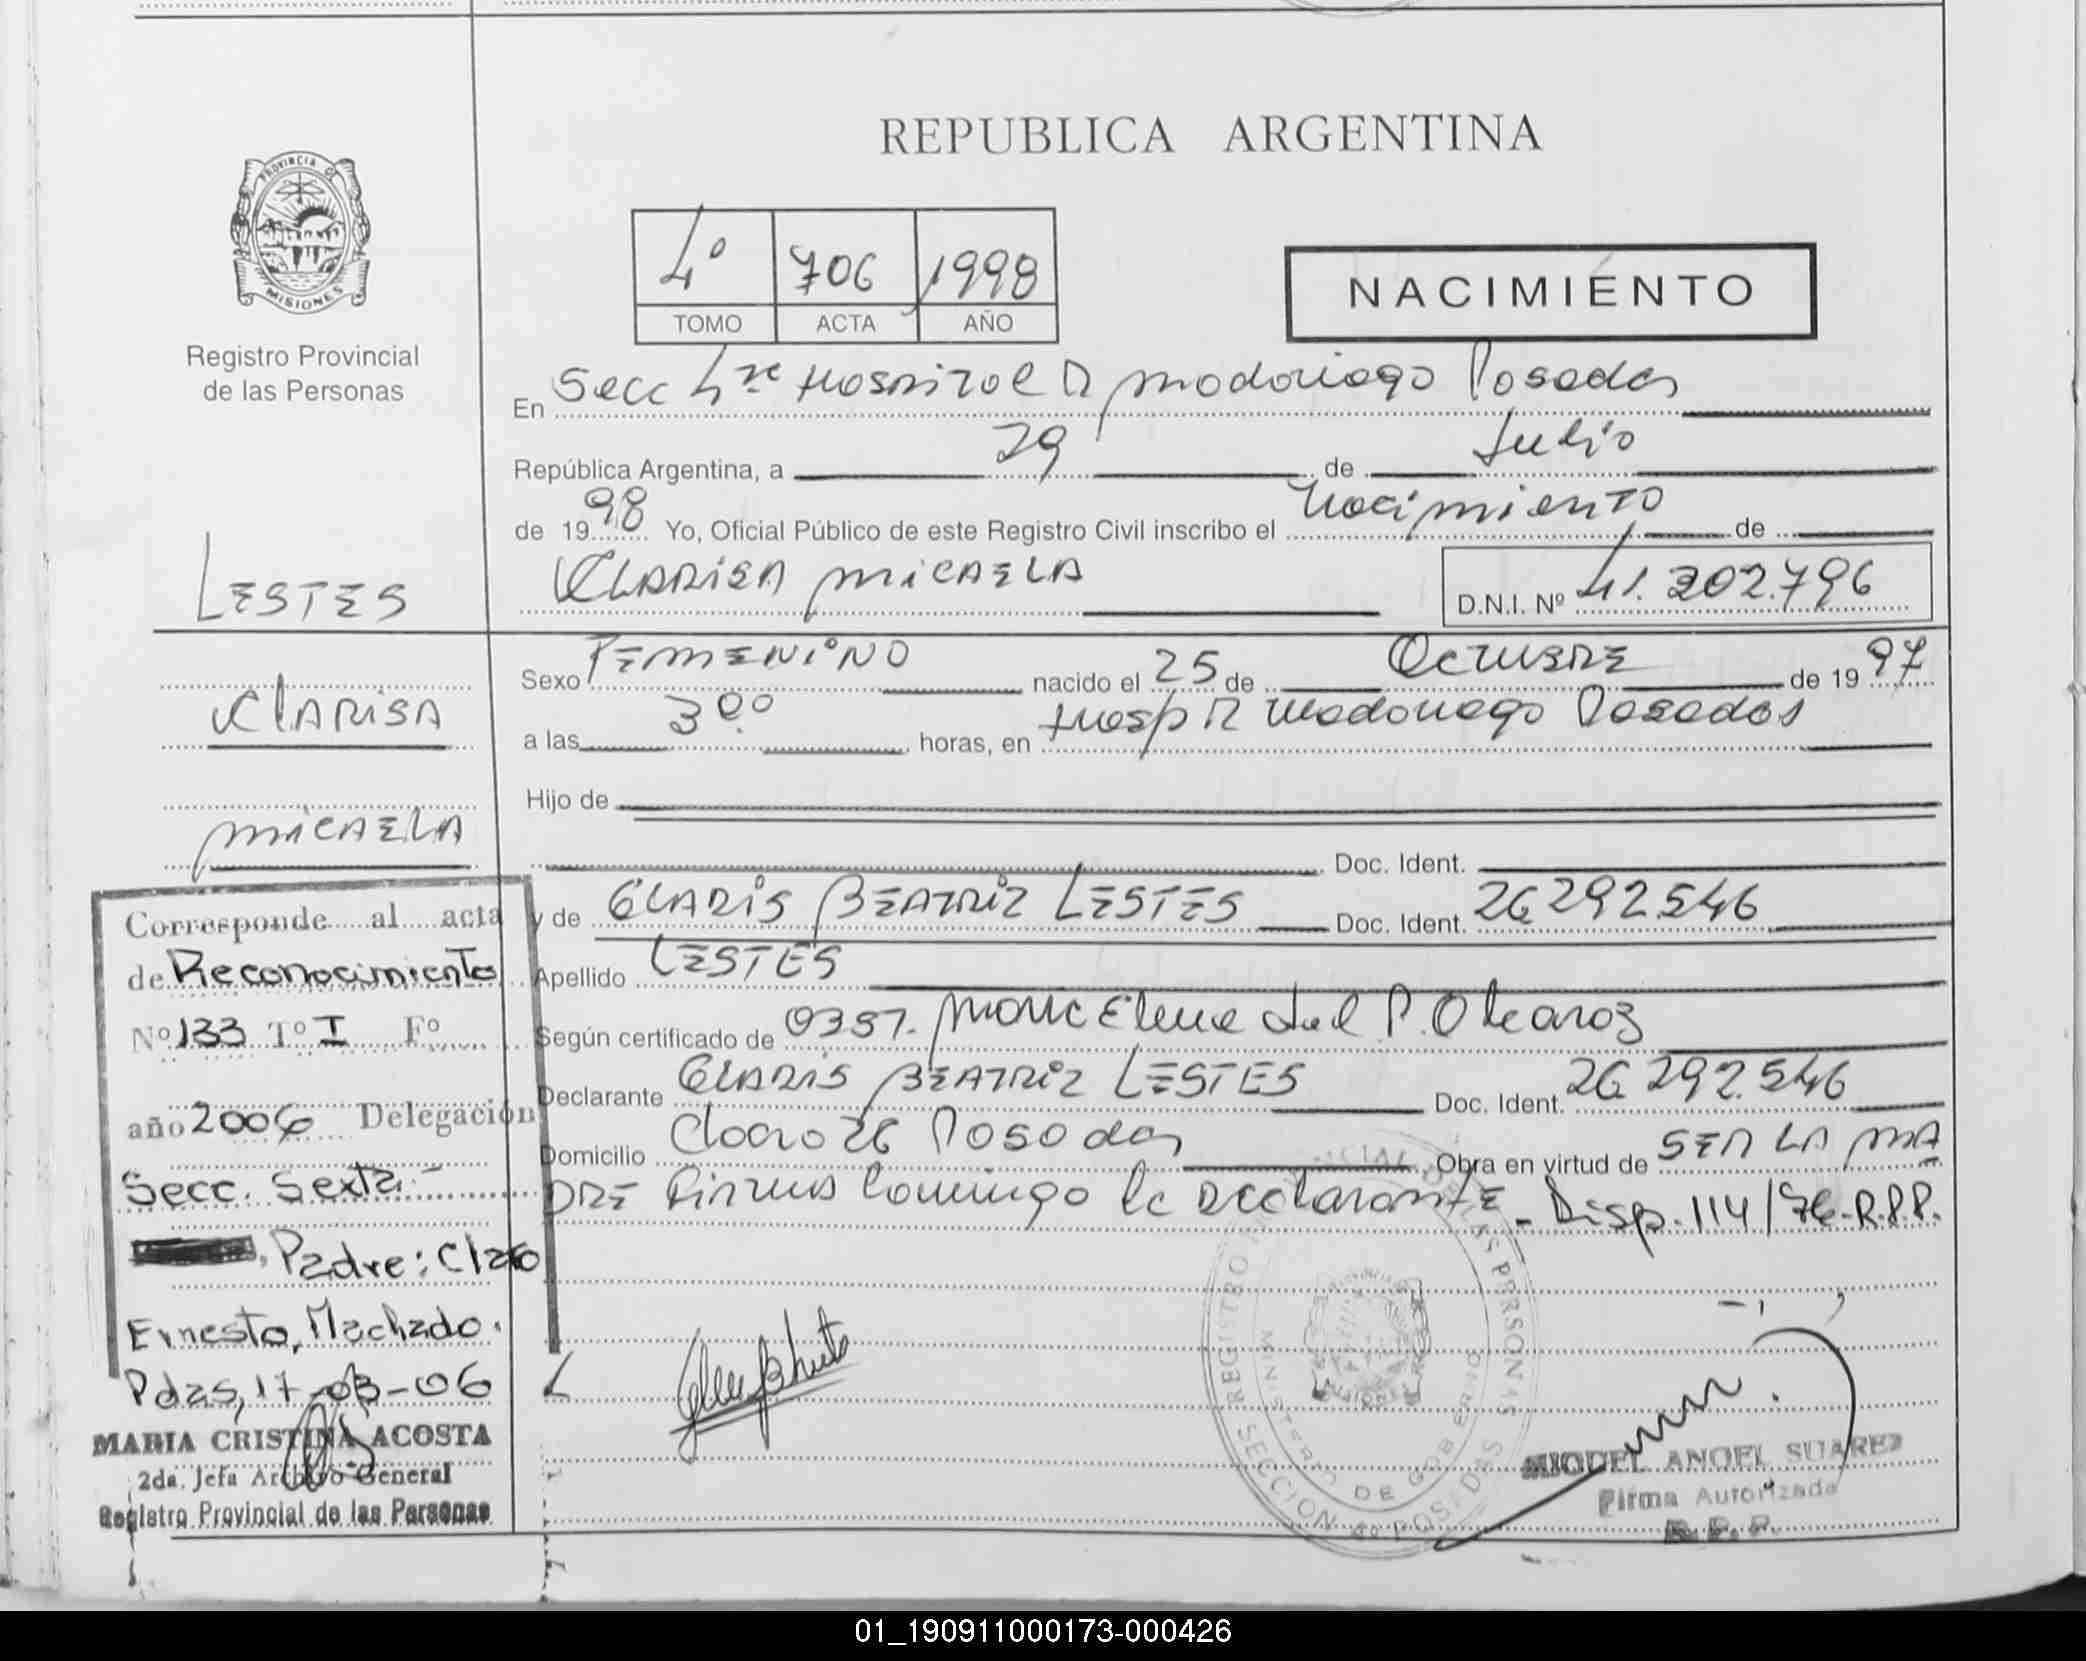 REPUBLICA ARGENTINA
PROVINCIA DE
MISIONES
Registro Provincial
de las Personas
4º 706 1998
TOMO ACTA AÑO
NACIMIENTO
En Secc 4ta Hospital R Madariaga Posadas
República Argentina, a 29 de Julio
de 1998 Yo, Oficial Público de este Registro Civil inscribo el Nacimiento de
CLARISA MICAELA
D.N.I. Nº 41.302.796
LESTES
CLARISA
MICAELA
Sexo FEMENINO nacido el 25 de OCTUBRE de 1997
a las 3ºº horas, en Hosp R Madariaga Posadas
Hijo de
Doc. Ident.
y de GLADIS BEATRIZ LESTES Doc. Ident. 26.292.546
Apellido LESTES
Según certificado de Obst. Elena del P.
Declarante GLADIS BEATRIZ LESTES Doc. Ident. 26.292.546
Domicilio 26 Posadas Obra en virtud de SER LA MA
DRE Firma Conmigo la Declarante - Disp. 114/76-R.P.P.
Corresponde al acta
de Reconocimiento
Nº 133 Tº I Fº
año 2006 Delegación
Secc. Sexta.-
Padre: Claro
Ernesto, Machado.
Pdas, 17-03-06
MARIA CRISTINA ACOSTA
2da. Jefa Archivo General
Registro Provincial de las Personas
REGISTRO PROVINCIAL DE LAS PERSONAS
MINISTERIO DE GOBIERNO
SECCION 4º POSADAS
MIGUEL ANGEL SUAREZ
Firma Autorizada
R. P. P.
01_190911000173-000426